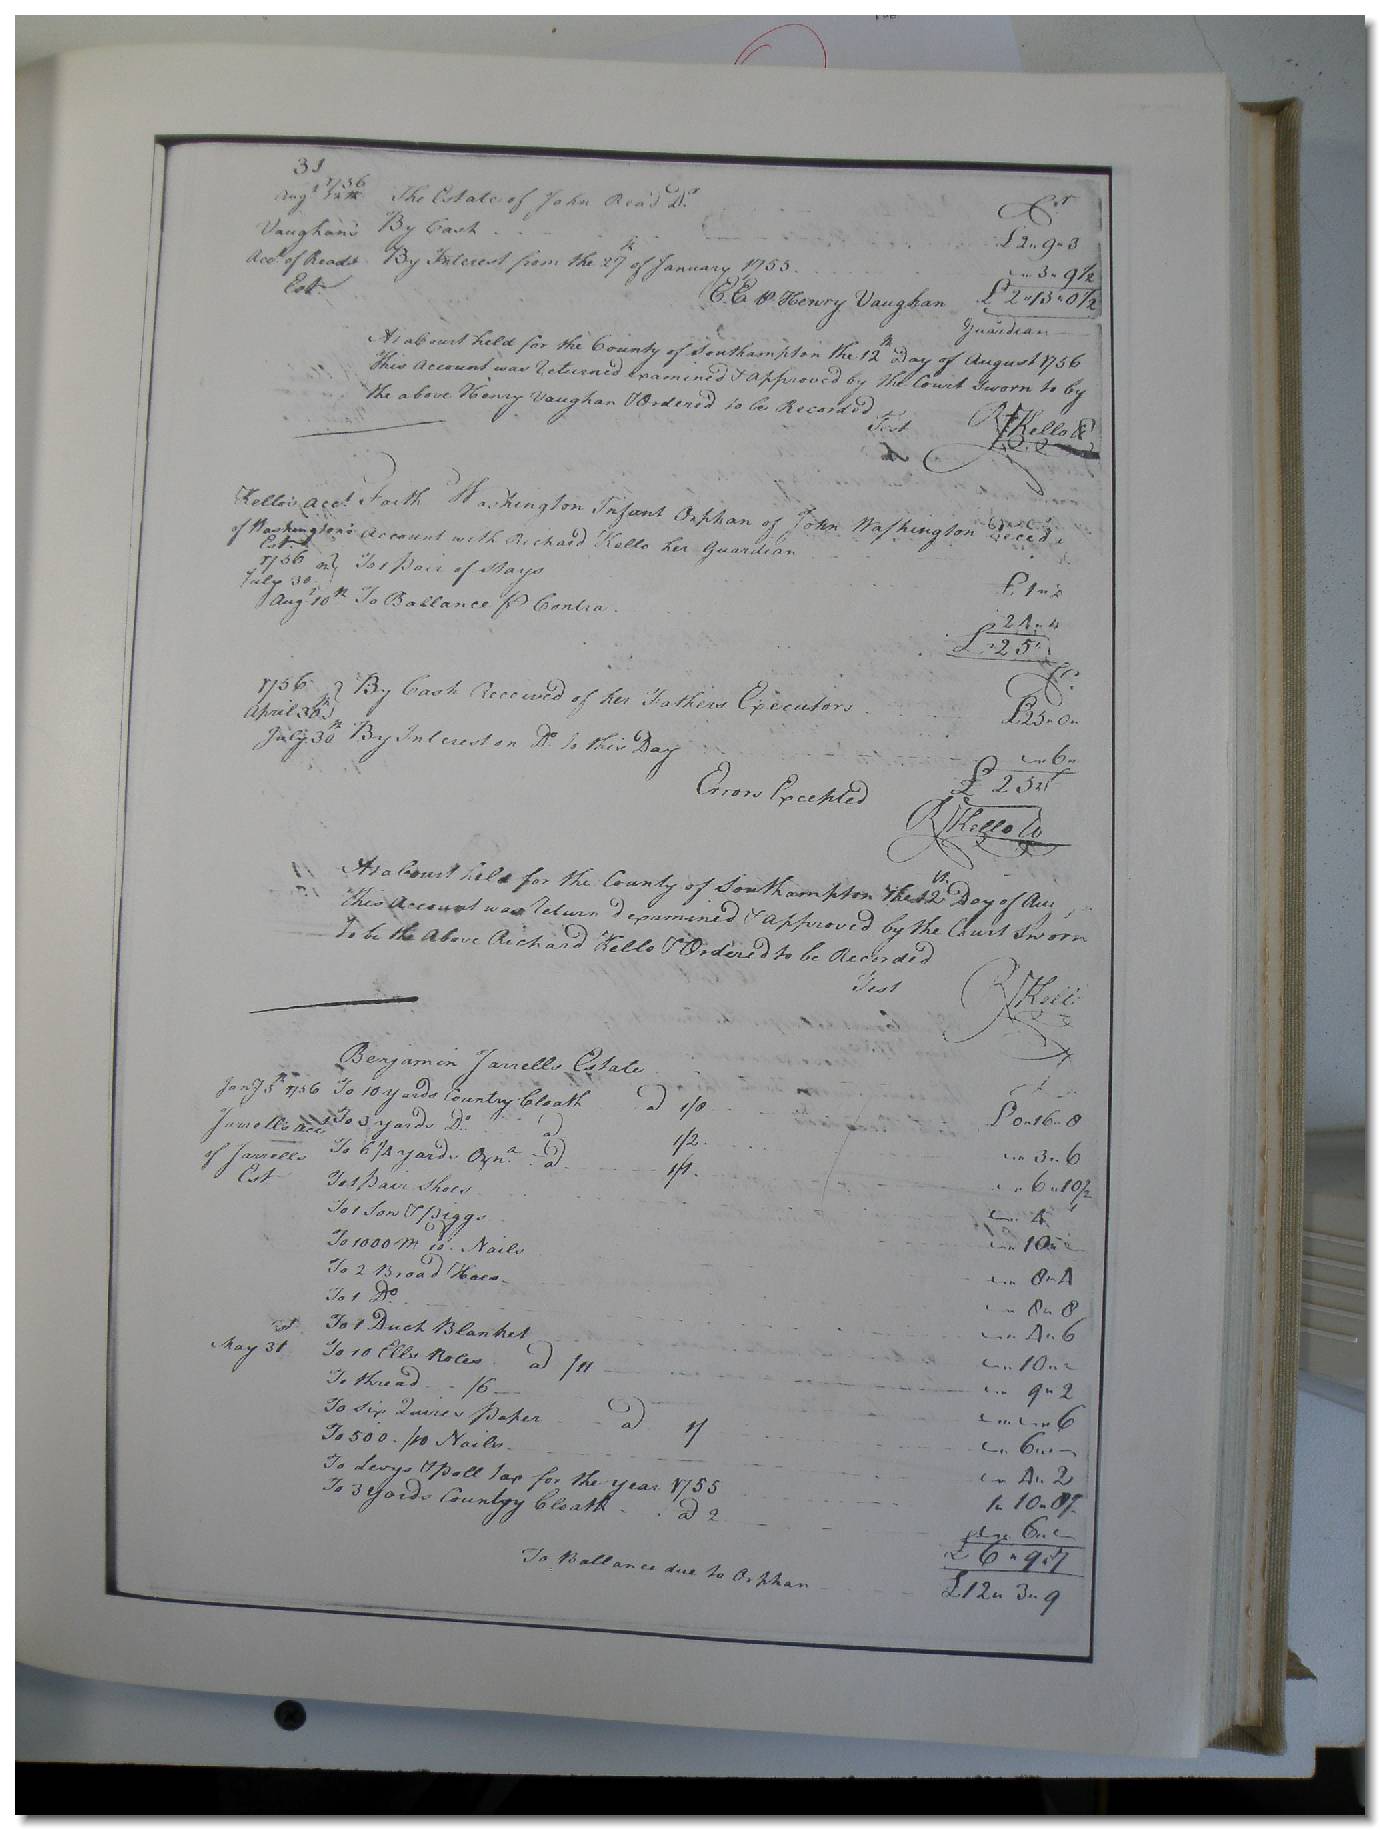 31
1756
Augt 12th The Estate of John Read Dr Cr
Vaughan's By Cash £2"9"3
Acct of Reads By Interest from the 27th of January 1755 "3"9½
Est. E.E. ⅌ Henry Vaughan £2"13"0½
Guardian
At a Court held for the County of Southampton the 12th Day of August 1756
This Account was Returned examined & approved by the Court Sworn to by
the above Henry Vaughan & Ordered to be Recorded
Test R Kello
Kello's acct Faith Washington Infant Orphan of John Washington Deced
of Washington's Account with Richard Kello her Guardian
Est.
1756 To 1 Pair of Stays £1"
July 30
Augt 10th To Ballance ⅌ Contra 24"4
£25"
Cr
1756 By Cash Received of her Fathers Executors £25"0"
April 30th
July 30th By Interest on Do to this Day "6"
Errors Excepted £25"
R Kello
At a Court held for the County of Southampton the 12th Day of Au
This Account was Return'd examined & approved by the Court Sworn
to be the Above Richard Kello & Ordered to be Recorded
Test R Kell
Benjamin Jarrells Estate
Jany 5th 1756 To 10 yards Country Cloath ad 1/8 £0"16"8
Jarrell's Acct To 3 yards Do ad 1/2 "3"6
of Jarrells To 6¼ yards Ozna ad 1/1 "6"10½
Est To 1 Pair Shoes "4"
To 1 Sow & Piggs "10"
To 1000 m 10. Nails "8"4
To 2 Broad Hoes "8"8
To 1 Do "4"6
To 1 Duch Blanket "10"
May 31 To 10 Ells Roles ad /11 "9"2
To thread /6 "6
To six Quires Paper ad 1/ "6"
To 500 /10 Nails "4"2
To Levys & Poll tax for the year 1755 1"10"
To 3 Yards Country Cloath ad 2 6"
£6"9"7
To Ballance due to Orphan £12"3"9